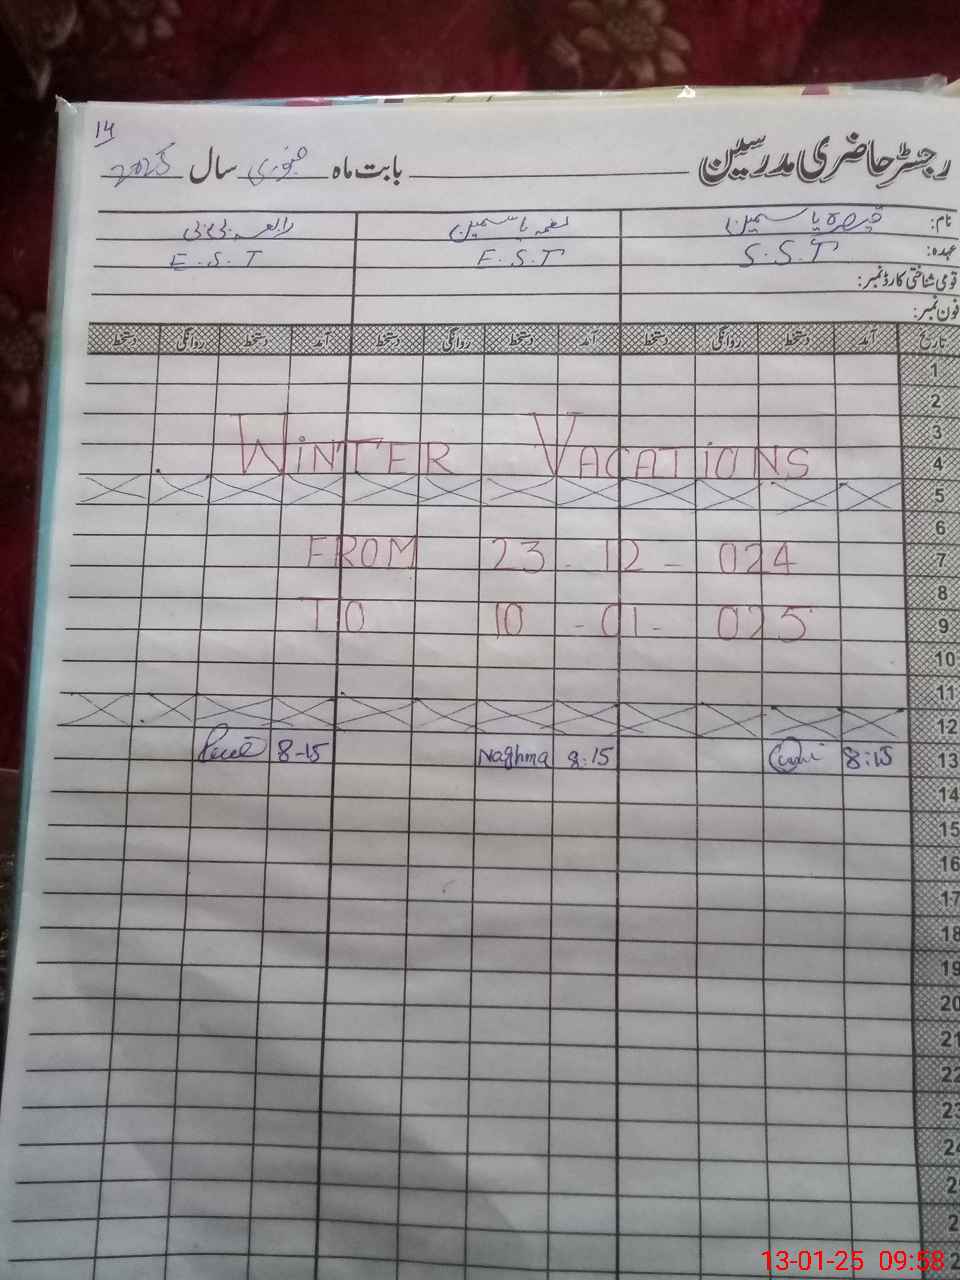 14
رجسٹر حاضری مدرسین بابت ماہ جنوری سال 2025
نام: قیصرہ یاسمین نغمہ یاسمین رابعہ بی بی
عہدہ: S.S.T E.S.T E.S.T
قومی شناختی کارڈ نمبر:
فون نمبر:
تاریخ آمد دستخط روانگی دستخط آمد دستخط روانگی دستخط آمد دستخط روانگی دستخط
1
2
3
WINTER VACATIONS 4
5
6
FROM 23-12-024 7
8
TO 10-01-025 9
10
11
12
8-15 Naghma 8:15 8:15 13
14
15
16
17
18
19
20
21
22
23
24
13-01-25 09:58